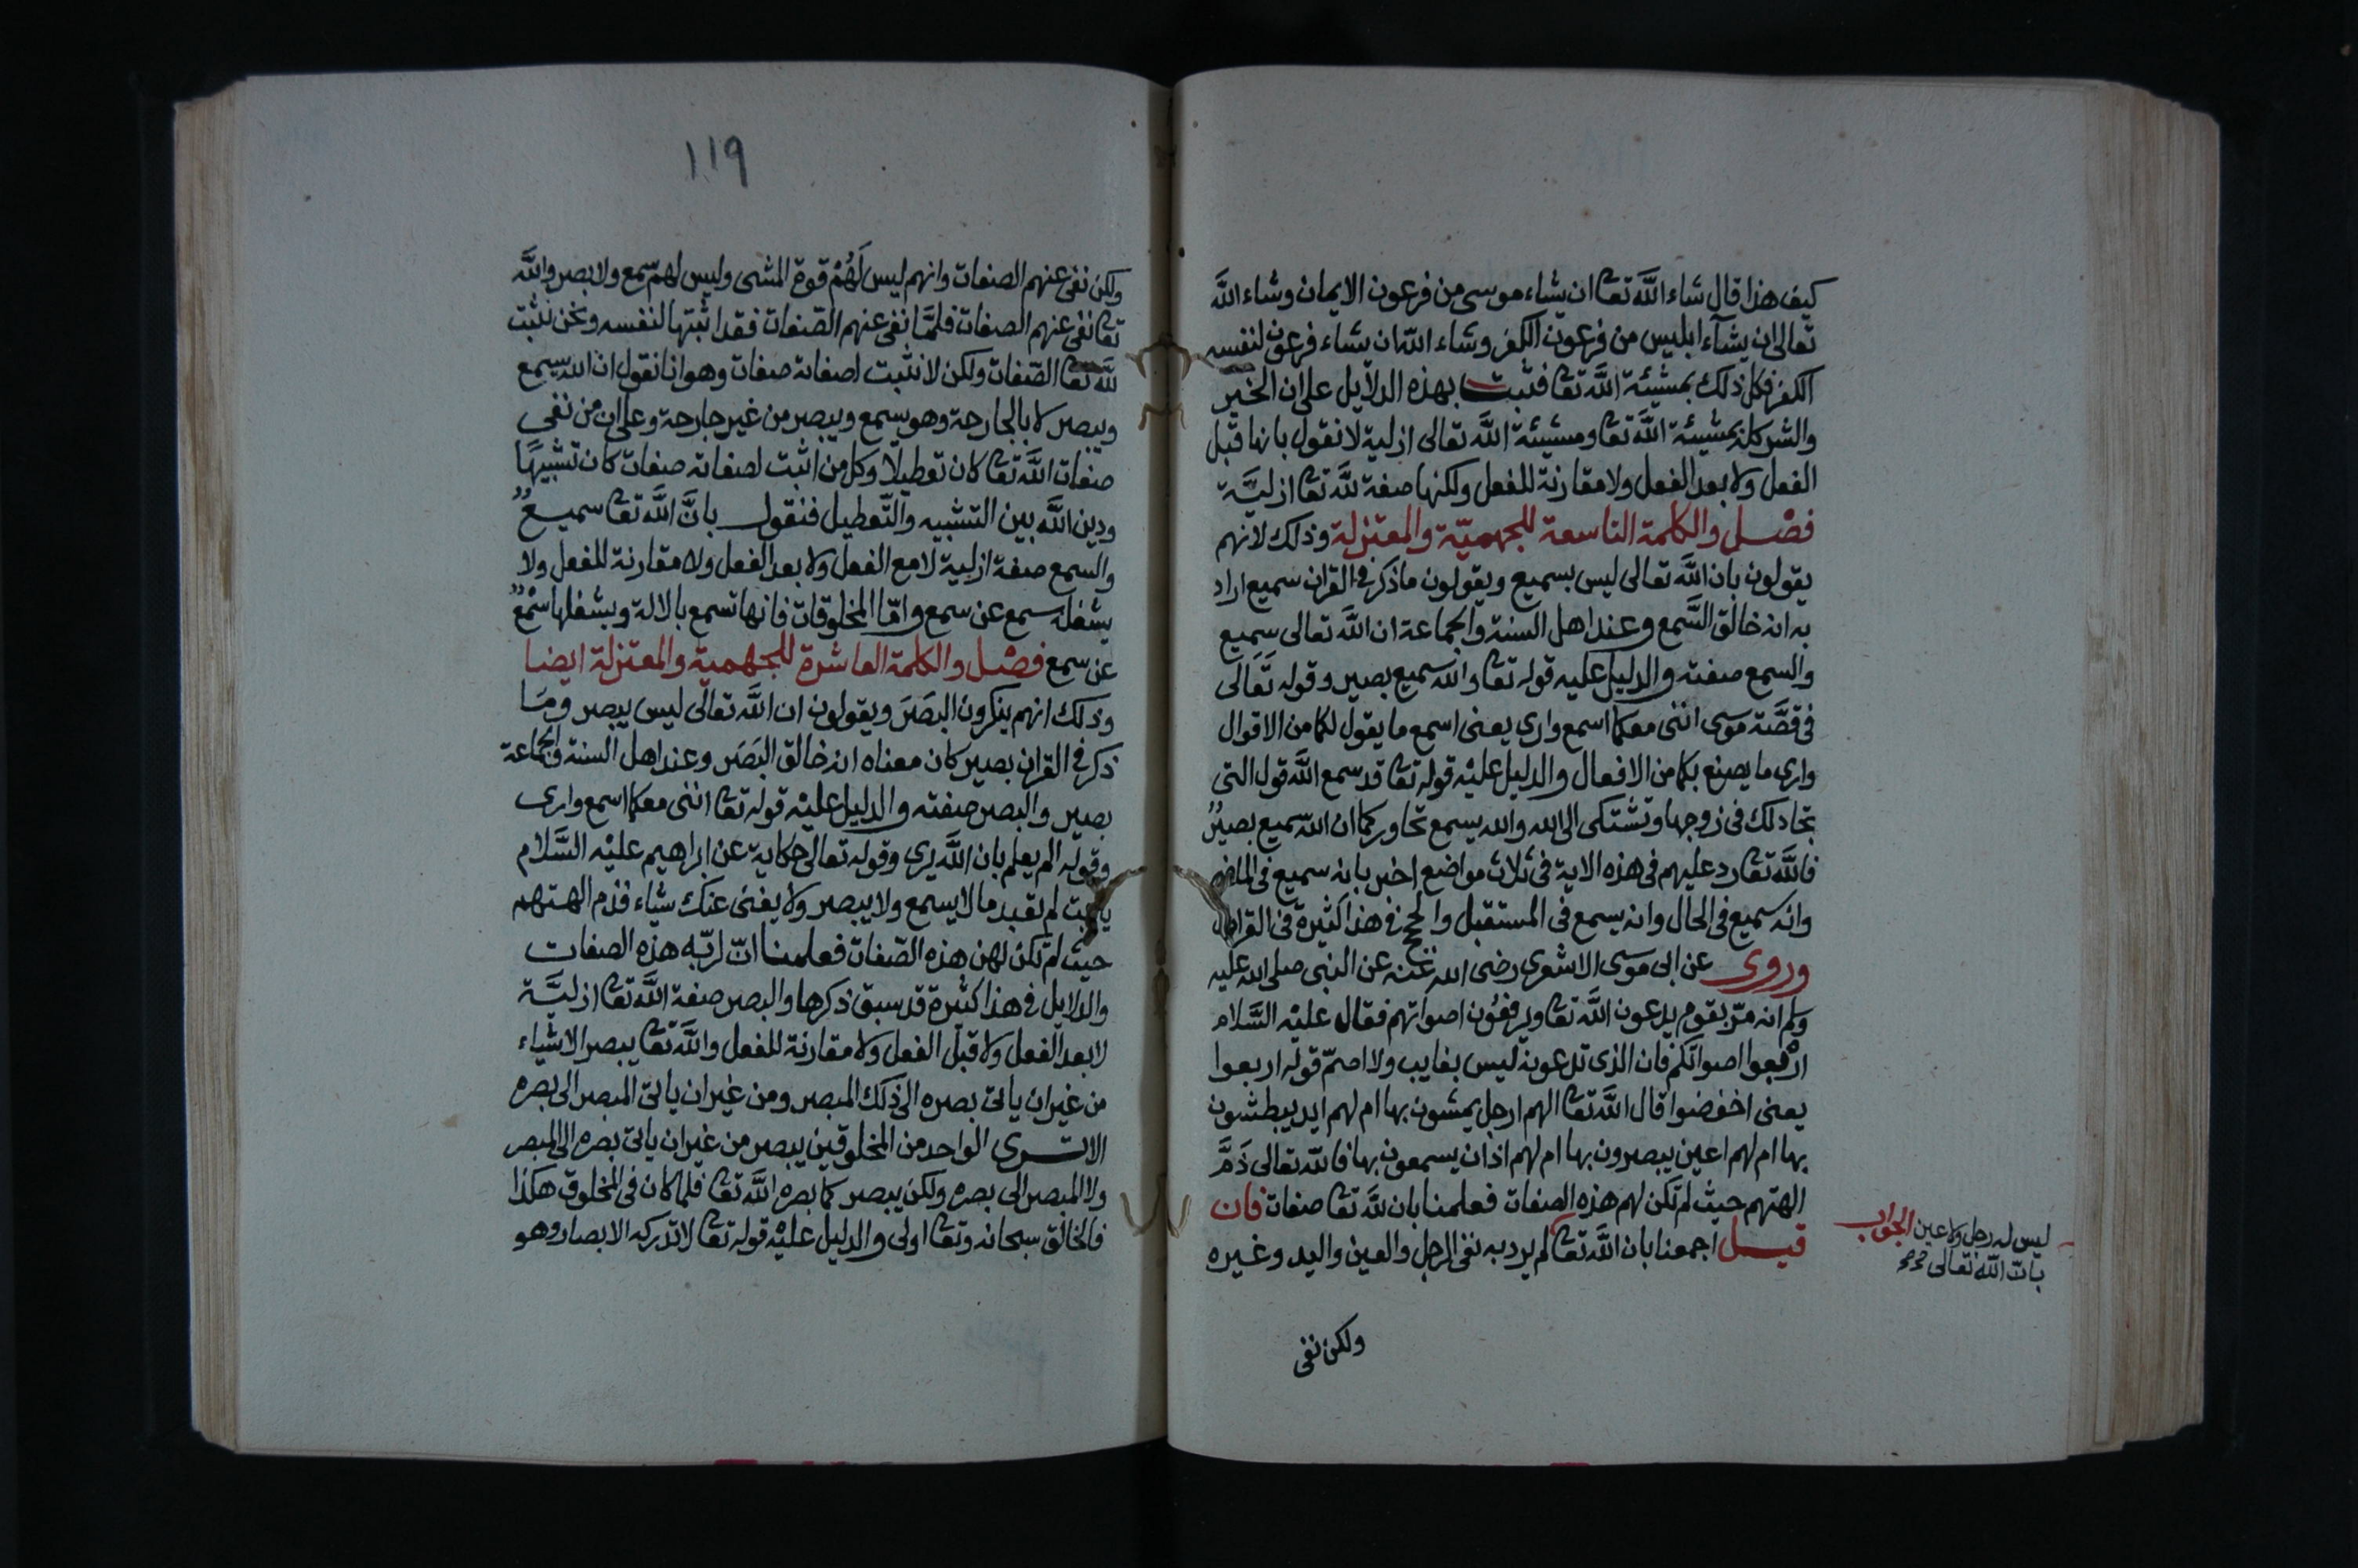 كيف هذا قال شاء اللّه تعا ان يشاء موسى من فرعون الايمان وشاء اللّه
تعالى ان يشآء ابليس من فرعون الكفر وشاء اللّه ان يشاء فرعون لنفسه
الكفر فكل ذلك بمشيئة اللّه تعا فثبت بهذه الدلايل على ان الخير
والشر كله بمشيئة اللّه تعا ومشيئة اللّه تعالى ازلية لا نقول بانها قبل
الفعل ولا بعد الفعل ولا مقارنة للفعل ولكنها صفة للّه تعا ازليّة
فصْل والكلمة التاسعة للجهميّة والمعتزلة وذلك لانهم
يقولون بان اللّه تعالى ليس بسميع ويقولون ما ذكر في القران سميع اراد
به انه خالق السّمع وعند اهل السنة والجماعة ان اللّه تعالى سميع
والسمع صفته والدليل عليه قوله تعا والله سميع بصير وقوله تعالى
في قصّة موسى اننى معكما اسمع وارى يعنى اسمع ما يقول لكما من الاقوال
وارى ما يصنع بكما من الافعال والدليل عليْه قوله تعا قد سمع اللّه قول التى
تجادلك في زوجها وتشتكى الى الله والله يسمع تحاوركما ان اللّه سميع بصيرٌ
فاللّه تعا رد عليهم في هذه الاية في ثلاث مواضع اخبر بانه سميع في الماضى
وانه سميع في الحال وانه يسمع في المستقبل والحجج في هذا كثيرة في القران
وروى عن ابى موسى الاشعرى رضى الله عنه عن النبى صلى الله عليه
وسلم انه مرّ بقوم يدعون اللّه تعا ويرفعون اصواتهم فقال عليْه السّلام
اربعوا اصواتكم فان الذى تدعونه ليس بغايب ولا اصمّ قوله اربعوا
يعنى اخفضوا قال اللّه تعا الهم ارجل يمشون بها ام لهم ايد يبطشون
بها ام لهم اعين يبصرون بها ام لهم اذان يسمعون بها فاللّه تعالى ذمّ
الهتهم حيث لم تكن لهم هذه الصفات فعلمنا بان للّه تعا صفات فان
قيل اجمعنا بان اللّه تعا لم يرد به نفى الرجل والعين واليد وغيره
ليس له رجل ولا عين الجواب
بان اللّه تعالى
ولكن نفى
١١٩
ولكن نفى عنهم الصفات وانهم ليس لَهُمْ قوة المشى وليس لهم سمع ولا بصر واللّه
تعا نفى عنهم الصفات فلمّا نفى عنهم الصّفات فقد اثبتها لنفسه ونحن نثبت
للّه تعا الصّفات ولكن لا نثبت لصفاته صفات وهو انا نقول ان الله سميع
ويبصر لا بالجارحة وهو يسمع ويبصر من غير جارحة وعلى ان من نفى
صفات اللّه تعا كان تعطيلا وكل من اثبت لصفاته صفات كان تشبيهًا
ودين اللّه بين التشبيه والتّعطيل فنقول بانّ اللّه تعا سميعٌ
والسمع صفة ازلية لا مع الفعل ولا بعد الفعل ولا مقارنة للفعل ولا
يشغله سمع عن سمع وامّا المخلوقات فانها تسمع بالالة ويشغلها سمْعٌ
عن سمع فصْل والكلمة العاشرة للجهمية والمعتزلة ايضا
وذلك انهم ينكرون البصَرَ ويقولون ان اللّه تعالى ليس يبصر ومَا
ذكر في القران بصير كان معناه انه خالق البَصَر وعند اهل السنة والجماعة
بصير والبصر صفته والدليل عليْه قوله تعا اننى معكما اسمع وارى
وقوله الم يعلم بان اللّه يرى وقوله تعالى حكاية عن ابراهيم عليْه السَّلام
يا ابت لم تعبد ما لا يسمع ولا يبصر ولا يغنى عنك شياء فذم الهتهم
حيث لم تكن لهن هذه الصّفات فعلمنا انّ لربّه هذه الصفات
والدلايل في هذا كثيرة قد سبق ذكرها والبصر صفة اللّه تعا ازليَّة
لا بعد الفعل ولا قبل الفعل ولا مقارنة للفعل واللّه تعا يبصر الاشياء
من غير ان ياتى بصره الى ذلك المبصر ومن غير ان ياتى المبصر الى بصره
الا ترى الواحد من المخلوقين يبصر من غير ان ياتى بصره الى المبصر
ولا المبصر الى بصره ولكن يبصر كما بصره اللّه تعا فلما كان في المخلوق هكذا
فالخالق سبحانه وتعا اولى والدليل عليْه قوله تعا لا تدركه الابصار وهو